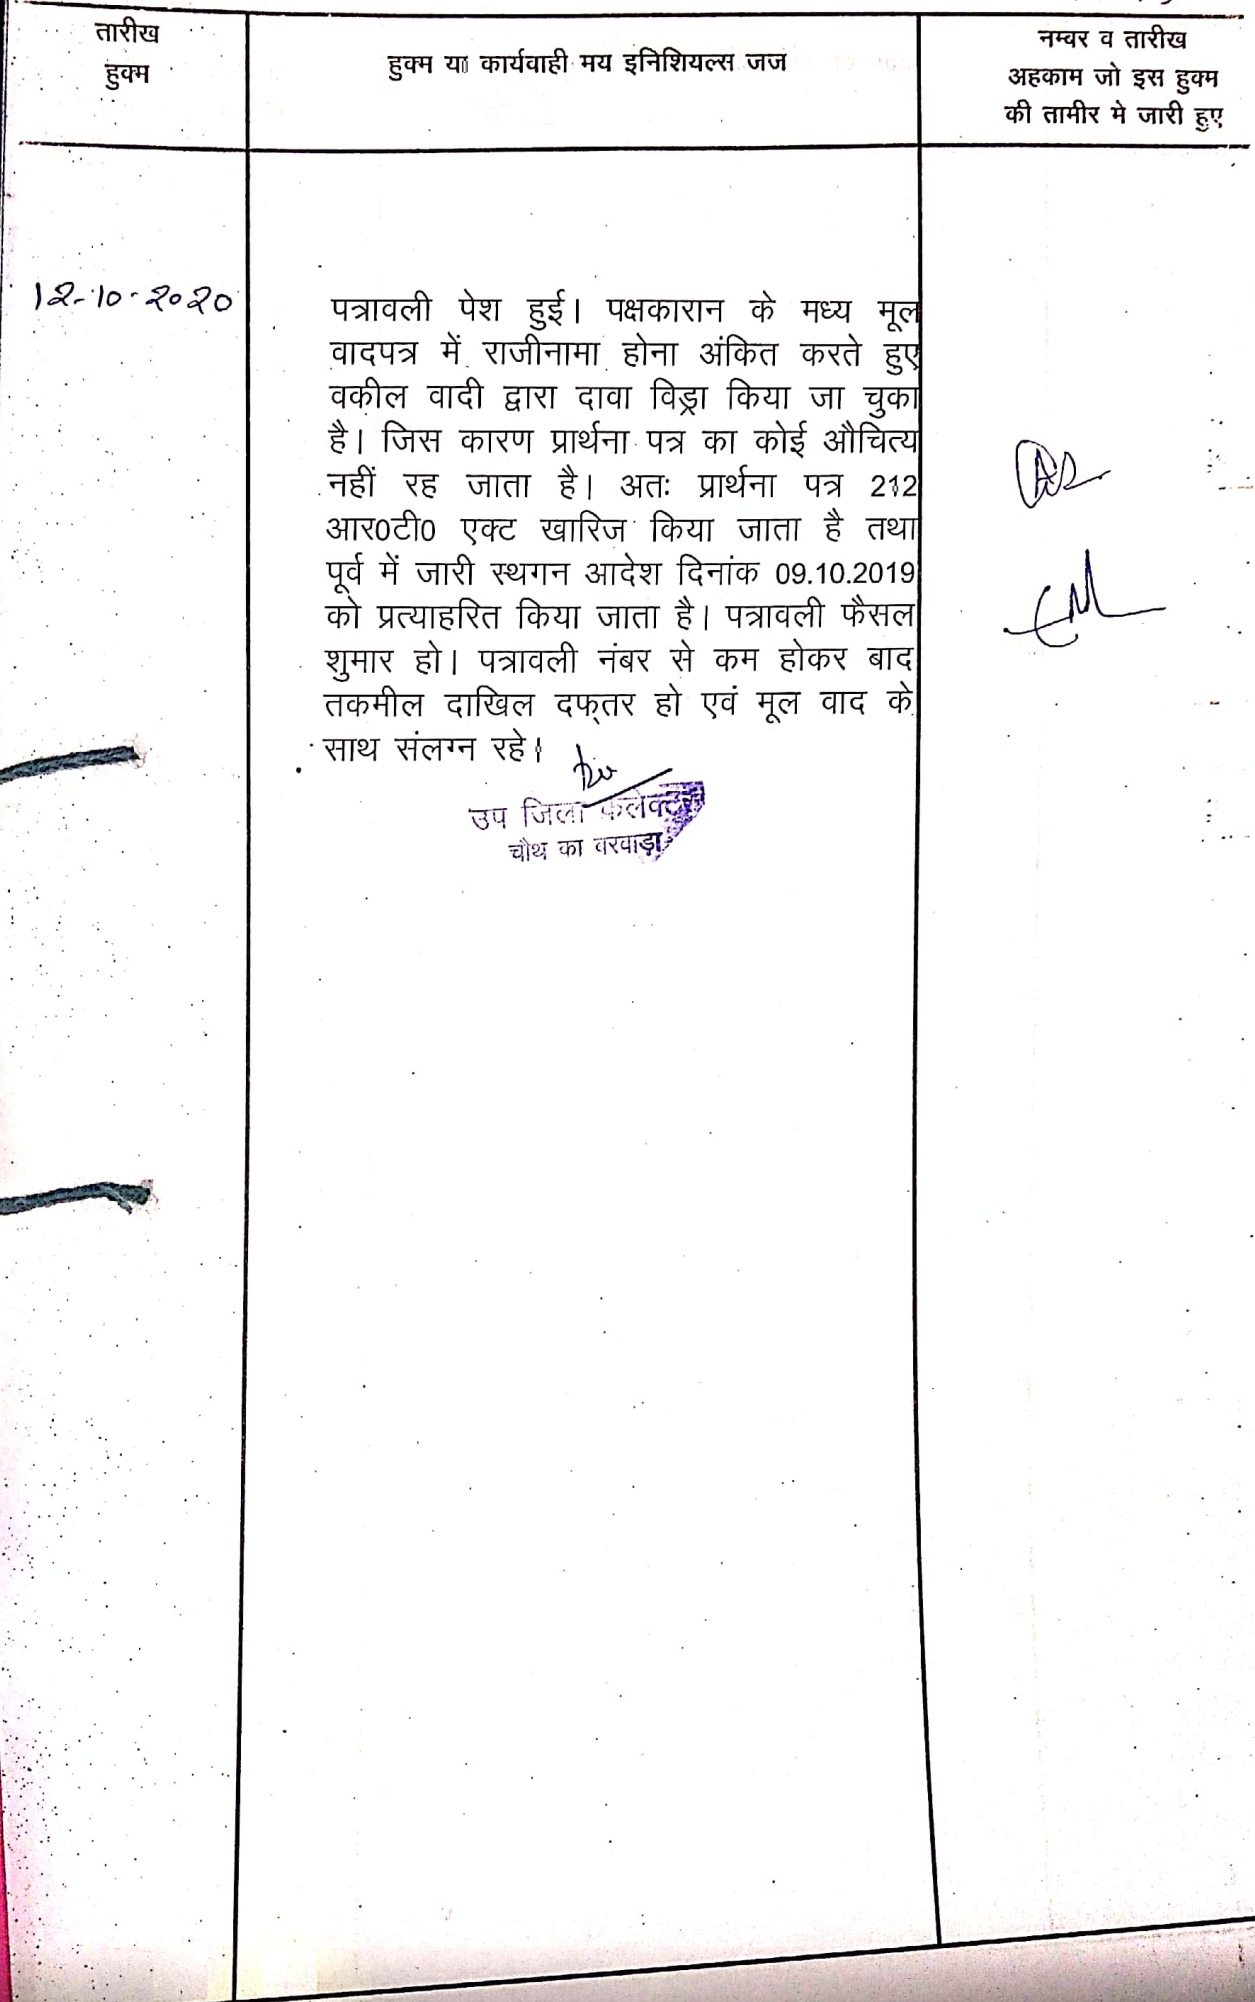 तारीख
हुक्म
हुक्म या कार्यवाही मय इनिशियल्स जज
नम्वर व तारीख
अहकाम जो इस हुक्म
की तामीर मे जारी हुए
12-10-2020
पत्रावली पेश हुई। पक्षकारान के मध्य मूल
वादपत्र में राजीनामा होना अंकित करते हुए
वकील वादी द्वारा दावा विड्रा किया जा चुका
है। जिस कारण प्रार्थना पत्र का कोई औचित्य
नहीं रह जाता है। अतः प्रार्थना पत्र 212
आर0टी0 एक्ट खारिज किया जाता है तथा
पूर्व में जारी स्थगन आदेश दिनांक 09.10.2019
को प्रत्याहरित किया जाता है। पत्रावली फैसल
शुमार हो। पत्रावली नंबर से कम होकर बाद
तकमील दाखिल दफ्तर हो एवं मूल वाद के
साथ संलग्न रहे।
उप जिला कलेक्टर
चौथ का बरवाड़ा